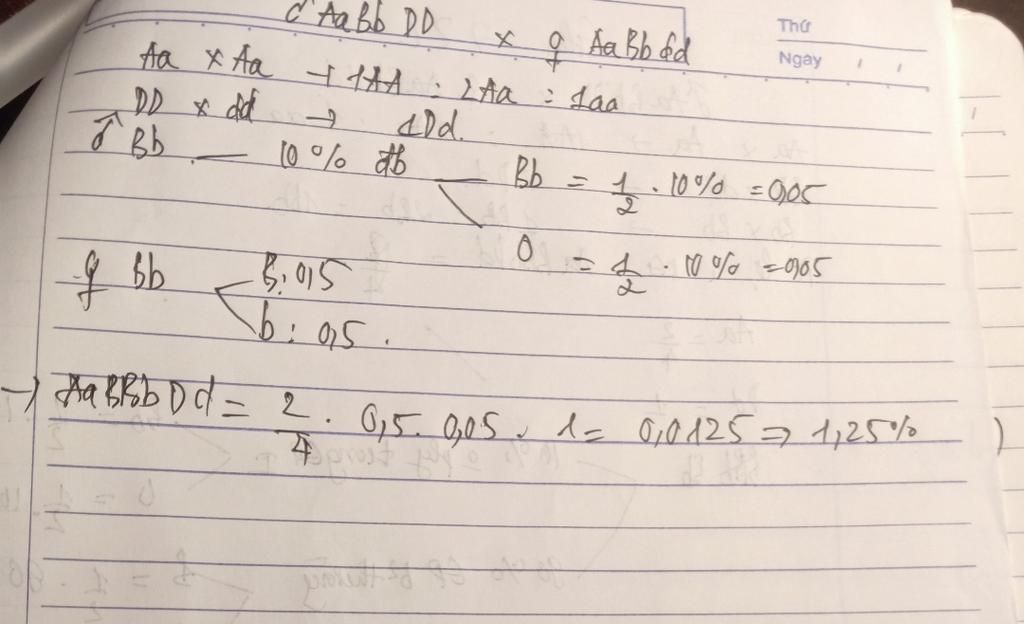 ♂ AaBb DD × ♀ AaBb dd
Thứ
Ngày
Aa × Aa → 1AA : 2Aa : 1aa
DD × dd → 1Dd.
♂ Bb — 10% đb — Bb = 1/2 . 10% = 0,05
0 = 1/2 . 10% = 0,05
♀ Bb B: 0,5
b: 0,5.
→ AaBBbDd = 2/4 . 0,5 . 0,05 . 1 = 0,0125 ⇒ 1,25%